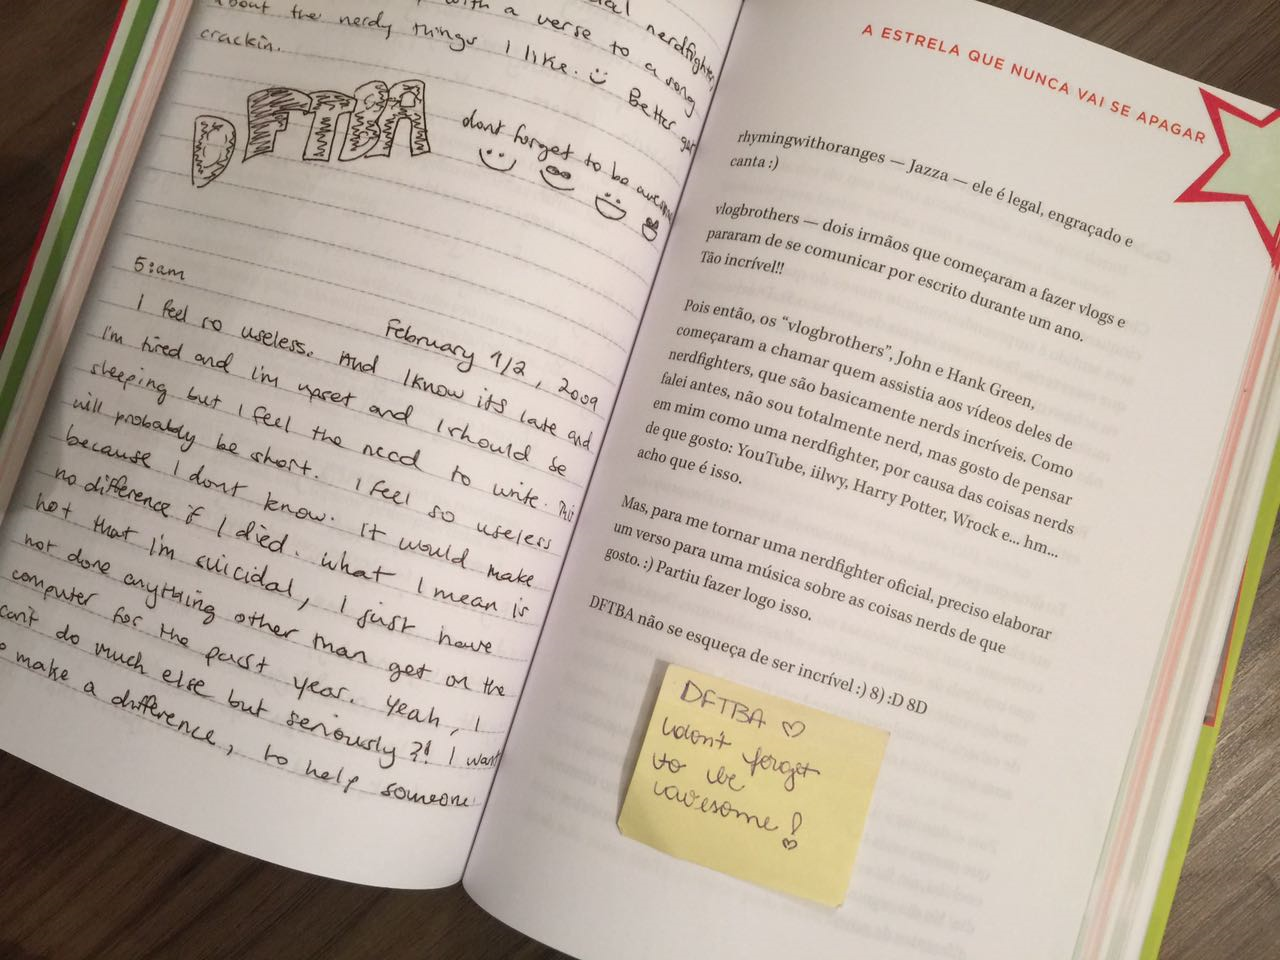 with a verse to a song
about the nerdy things I like. :) Better get
crackin.
DFTBA
dont forget to be awesome
5:am
February 1/2, 2009
I feel so useless. And I know its late and
I'm tired and I'm upset and I should be
sleeping but I feel the need to write. This
will probably be short. I feel so useless
because I dont know. It would make
no difference if I died. What I mean is
not that I'm suicidal, I just have
not done anything other than get on the
computer for the past year. Yeah, I
can't do much else but seriously?! I want
to make a difference, to help someone
A ESTRELA QUE NUNCA VAI SE APAGAR
rhymingwithoranges — Jazza — ele é legal, engraçado e
canta :)
vlogbrothers — dois irmãos que começaram a fazer vlogs e
pararam de se comunicar por escrito durante um ano.
Tão incrível!!
Pois então, os “vlogbrothers”, John e Hank Green,
começaram a chamar quem assistia aos vídeos deles de
nerdfighters, que são basicamente nerds incríveis. Como
falei antes, não sou totalmente nerd, mas gosto de pensar
em mim como uma nerdfighter, por causa das coisas nerds
de que gosto: YouTube, iilwy, Harry Potter, Wrock e... hm...
acho que é isso.
Mas, para me tornar uma nerdfighter oficial, preciso elaborar
um verso para uma música sobre as coisas nerds de que
gosto. :) Partiu fazer logo isso.
DFTBA não se esqueça de ser incrível :) 8) :D 8D
DFTBA ♡
don't forget
to be
awesome!